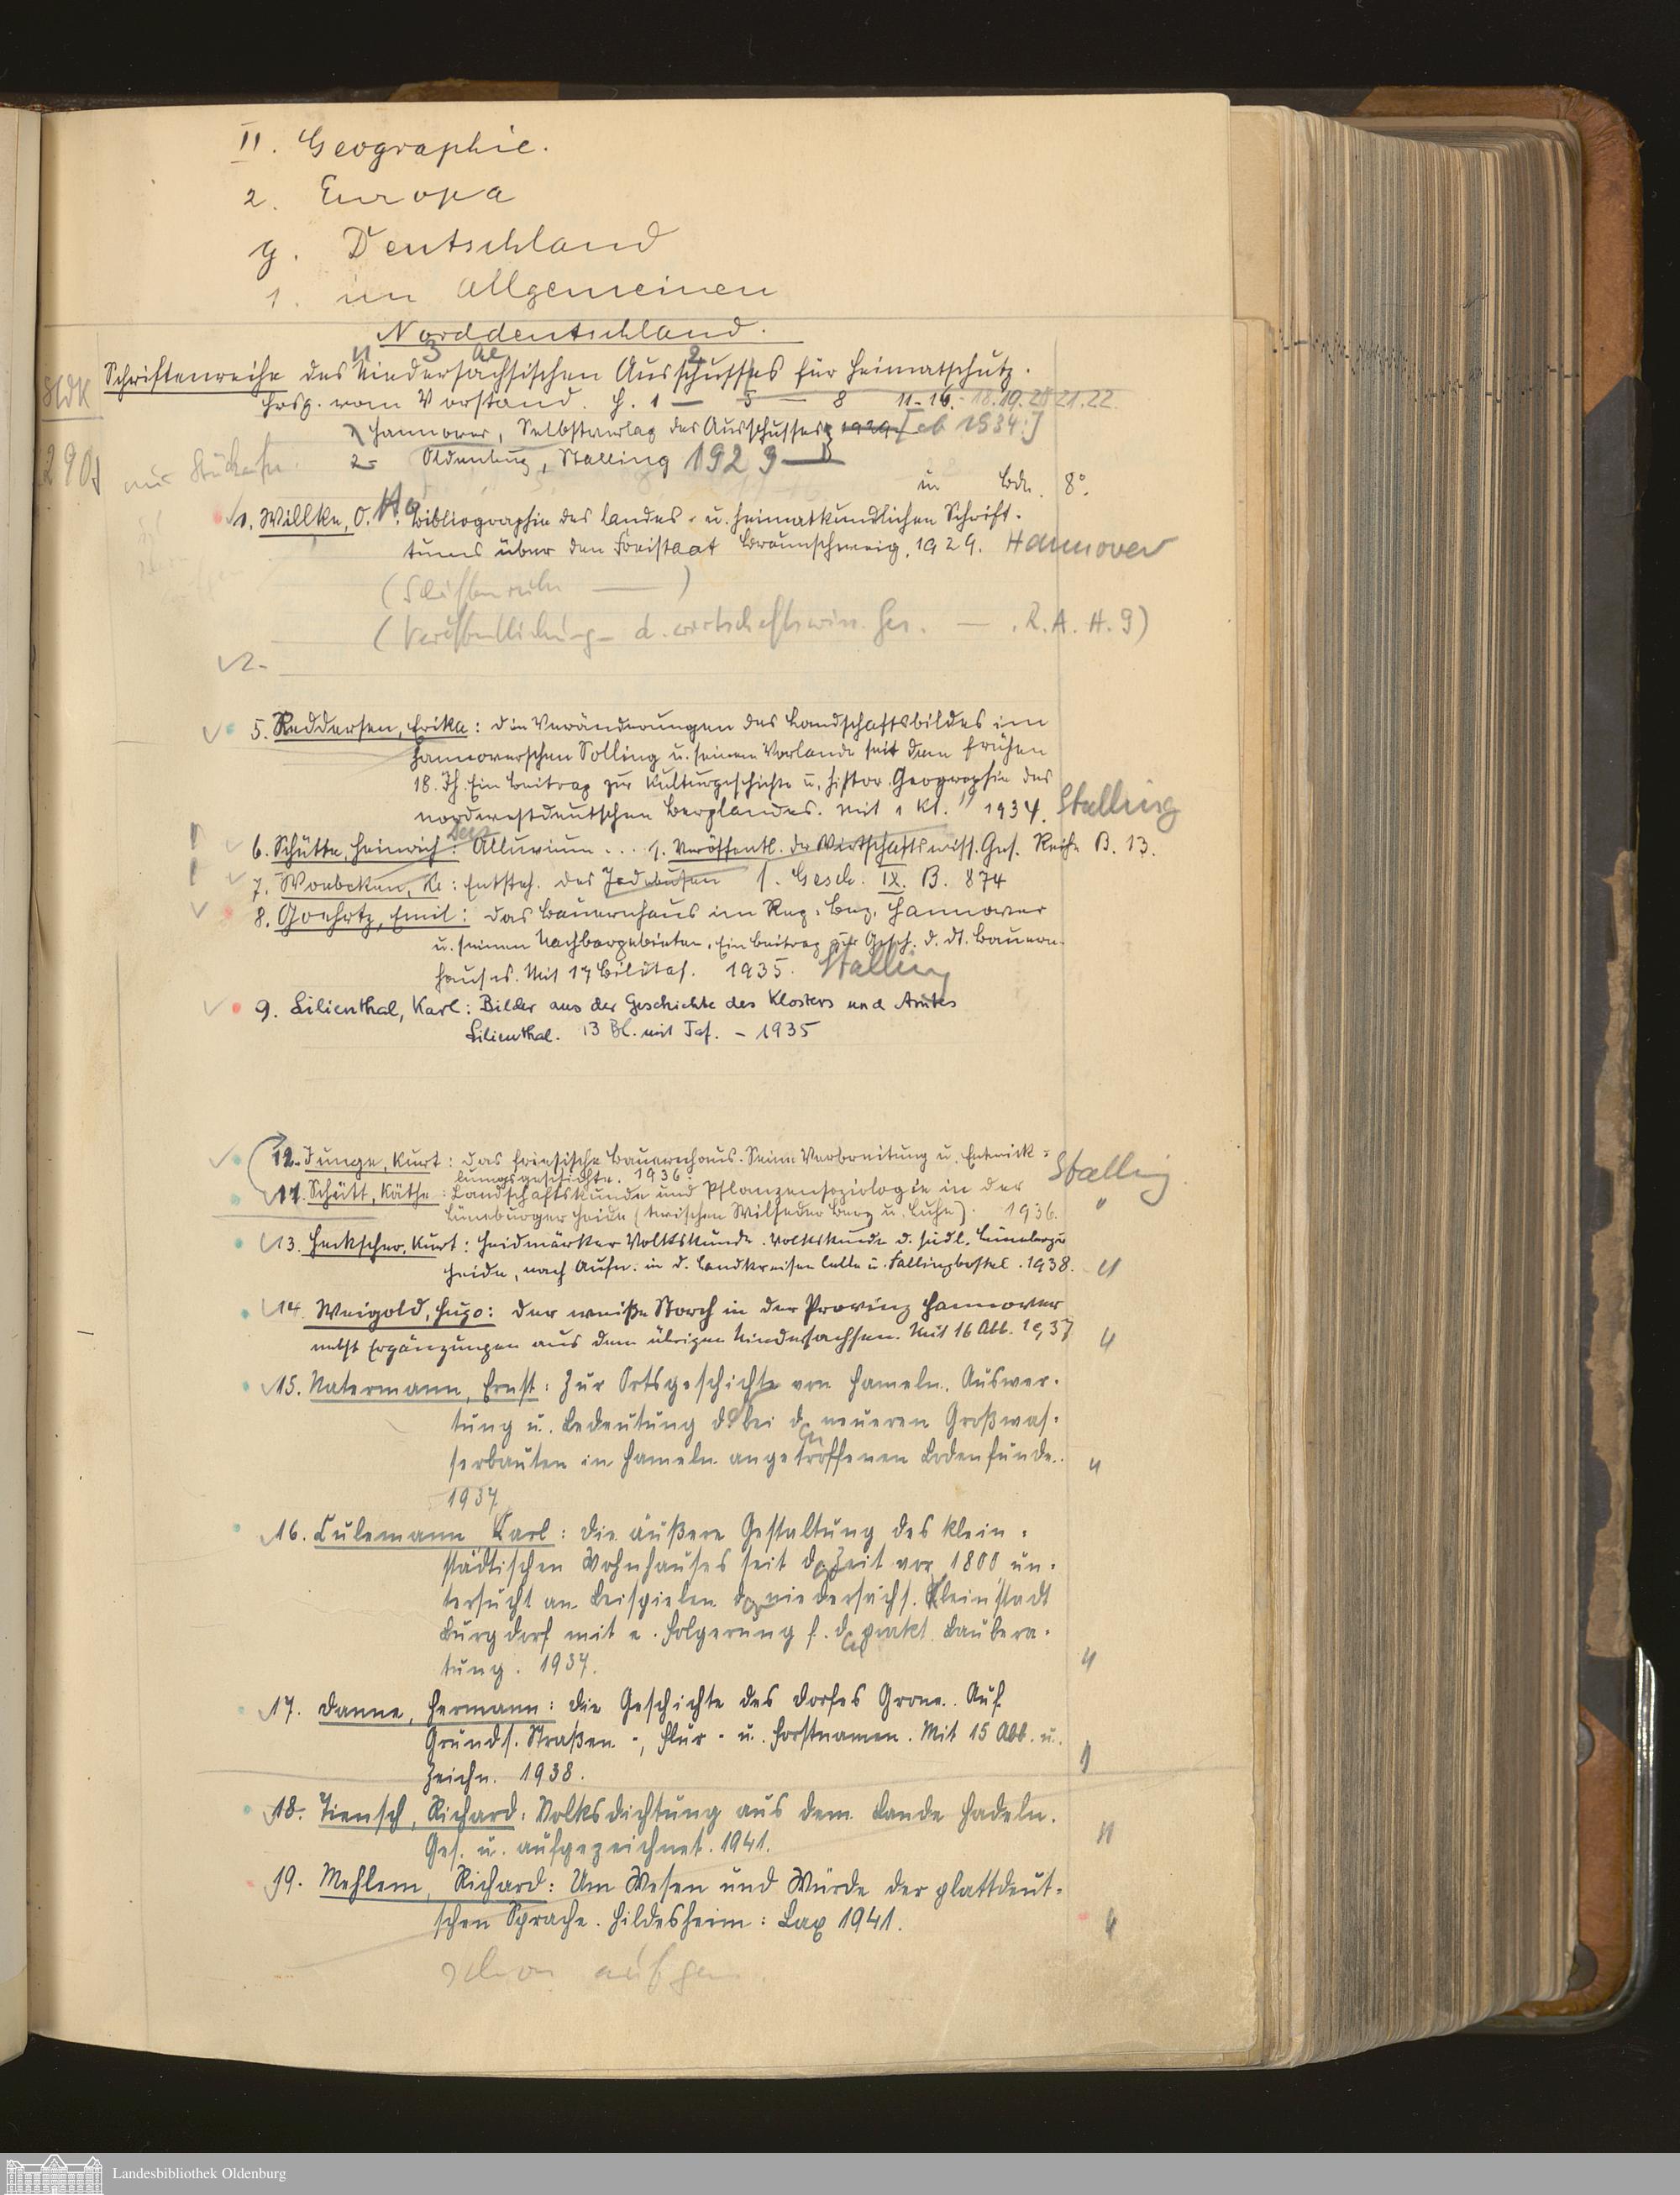 II. Geographie.
2. Europa
g. Deutschland
1. im Allgemeinen
Norddeutschland.
Schriftenreihe des Niedersächsischen Ausschusses für Heimatschutz.
hrsg. vom Vorstand. H. 1 — 5 — 8 11-16. 18.19.20 21.22.
Hannover, Selbstverlag des Ausschusses 1929 [ab 1934:]
2= Oldenburg, Stalling 1929 —
in Bdn. 8°.
1. Willke, O. Bibliographie des landes- u. heimatkundlichen Schrift-
tums über den Freistaat Braunschweig. 1929. Hannover
(Schriftenreihe — )
(Veröffentlichung- d. wirtschaftswiss. Ges. — . R. A. H. 9)
2.
5. Reddersen, Erika: Die Veränderungen des Landschaftsbildes im
hannoverschen Solling u. seinem Vorlande seit dem frühen
18. Jh. Ein Beitrag zur Kulturgeschichte u. histor. Geographie des
nordwestdeutschen Berglandes. Mit 1 Kt. 1934. Stalling
6. Schütte, Heinrich: Das Alluvium... s. Veröffentl. der Wirtschaftswiss. Ges. Reihe B. 13.
7. Woebcken, K: Entsteh. des Jadebusen s. Gesch. IX. B. 874
8. Goehrtz, Emil: Das Bauernhaus im Reg. Bez. Hannover
u. seinen Nachbargebieten. Ein Beitrag zur Gesch. d. dt. Bauern-
hauses. Mit 17 Bildtaf. 1935. Stalling
9. Lilienthal, Karl: Bilder aus der Geschichte des Klosters und Amtes
Lilienthal. 13 Bl. mit Taf. - 1935
12. Junge, Kurt: Das friesische Bauernhaus. Seine Verbreitung u. Entwick=
lungsgeschichte. 1936. Stalling
11. Schütt, Käthe: Landschaftskunde und Pflanzensoziologie in der
Lüneburger Heide (zwischen Wilseder Berg u. Luhe). 1936. "
13. Heckscher, Kurt: Heidmärker Volkskunde. Volkskunde d. südl. Lüneburger
Heide, nach Aufn. in d. Landkreisen Celle u. Fallingbostel. 1938. "
14. Weigold, Hugo: Der weiße Storch in der Provinz Hannover
nebst Ergänzungen aus dem übrigen Niedersachsen. Mit 16 Abb. 1937 "
15. Natermann, Ernst: Zur Ortsgeschichte von Hameln. Auswer-
tung u. Bedeutung d. bei den neueren Großwas-
serbauten in Hameln angetroffenen Bodenfunde. "
1937
16. Culemann Carl: Die äußere Gestaltung des klein-
städtischen Wohnhauses seit der Zeit vor 1800 un-
tersucht an Beispielen der niedersächs. Kleinstadt
Burgdorf mit e. Folgerung f. d. prakt. Baubera-
tung. 1937. "
17. Danne, Hermann: Die Geschichte des Dorfes Grone. Auf
Grund s. Straßen-, Flur- u. Forstnamen. Mit 15 Abb. u.
Zeichn. 1938. "
18. Tiensch, Richard: Volksdichtung aus dem Lande Hadeln.
Ges. u. aufgezeichnet. 1941. "
19. Mehlem, Richard: Um Wesen und Würde der plattdeut-
schen Sprache. Hildesheim: Lax 1941. "
schon aufgen.
Landesbibliothek Oldenburg